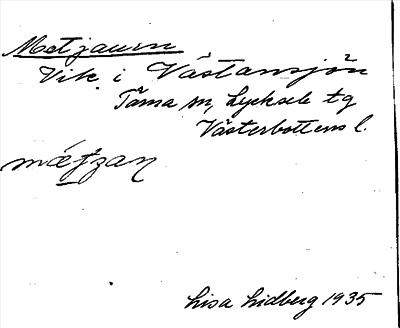 Metjaurn
Vik i Västansjön
Tärna sn, Lycksele tg
Västerbottens l.
Lisa Lidberg 1935